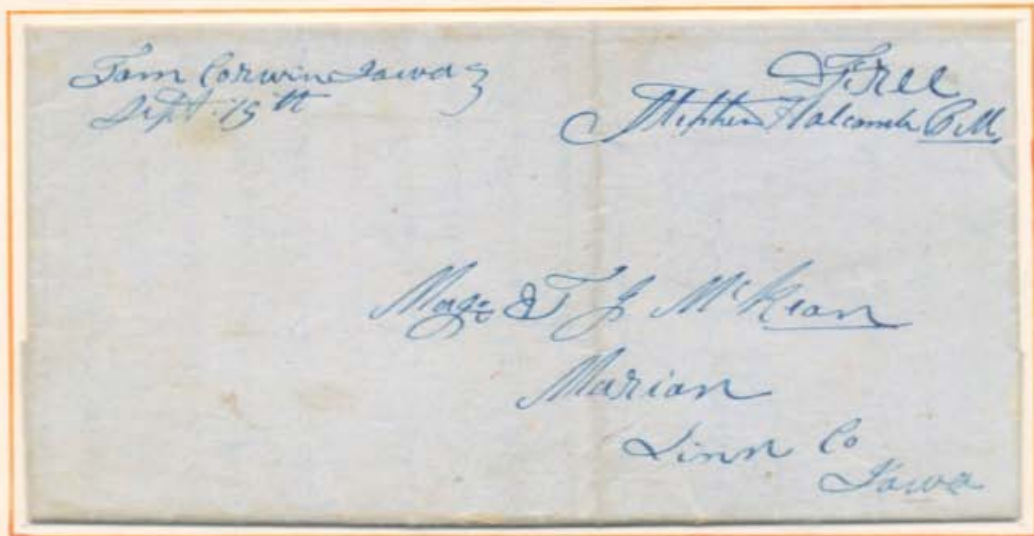 Tom Corwin Iowa
Sept. 15th
Free
Stephen Holcomb P.M.
T J McKean
Marion
Linn Co
Iowa